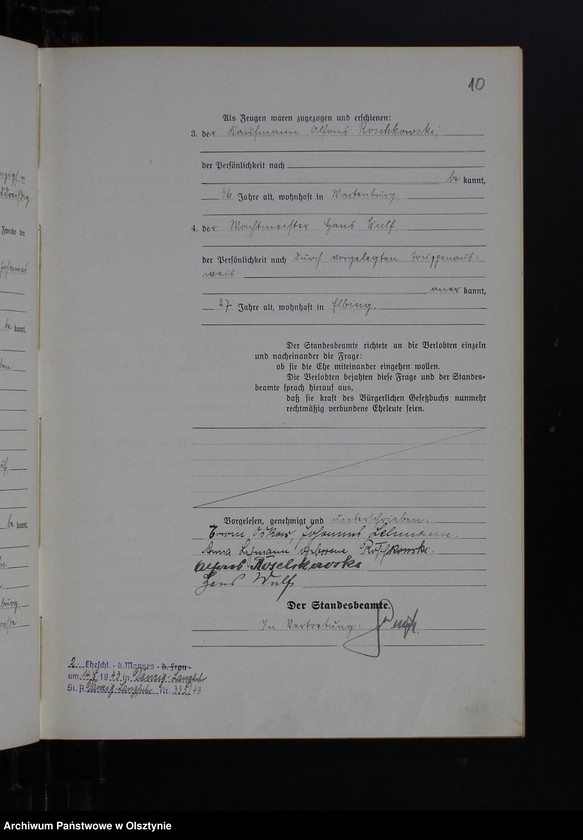 10
Als Zeugen waren zugezogen und erschienen:
3. der Kaufmann Alfons Roschkowski,
der Persönlichkeit nach
be kannt,
36 Jahre alt, wohnhaft in Wartenburg.
4. der Wachtmeister Hans Wulf
der Persönlichkeit nach durch vorgelegten Truppenaus-
weis
aner kannt,
27 Jahre alt, wohnhaft in Elbing.
Der Standesbeamte richtete an die Verlobten einzeln
und nacheinander die Frage:
ob sie die Ehe miteinander eingehen wollen.
Die Verlobten bejahten diese Frage und der Standes-
beamte sprach hierauf aus,
daß sie kraft des Bürgerlichen Gesetzbuchs nunmehr
rechtmäßig verbundene Eheleute seien.
Vorgelesen, genehmigt und unterschrieben.
Johannes Lehmann.
Anna Lehmann geborene Roschkowski.
Alfons Roschkowski
Hans Wulf
Der Standesbeamte.
In Vertretung:
2. Eheschl. d. Mannes - d. Frau -
am 19 43 in Danzig-Langfuhr
St. A. Danzig-Langfuhr Nr.
Zwecke der
be kannt,
be kannt,
Archiwum Państwowe w Olsztynie